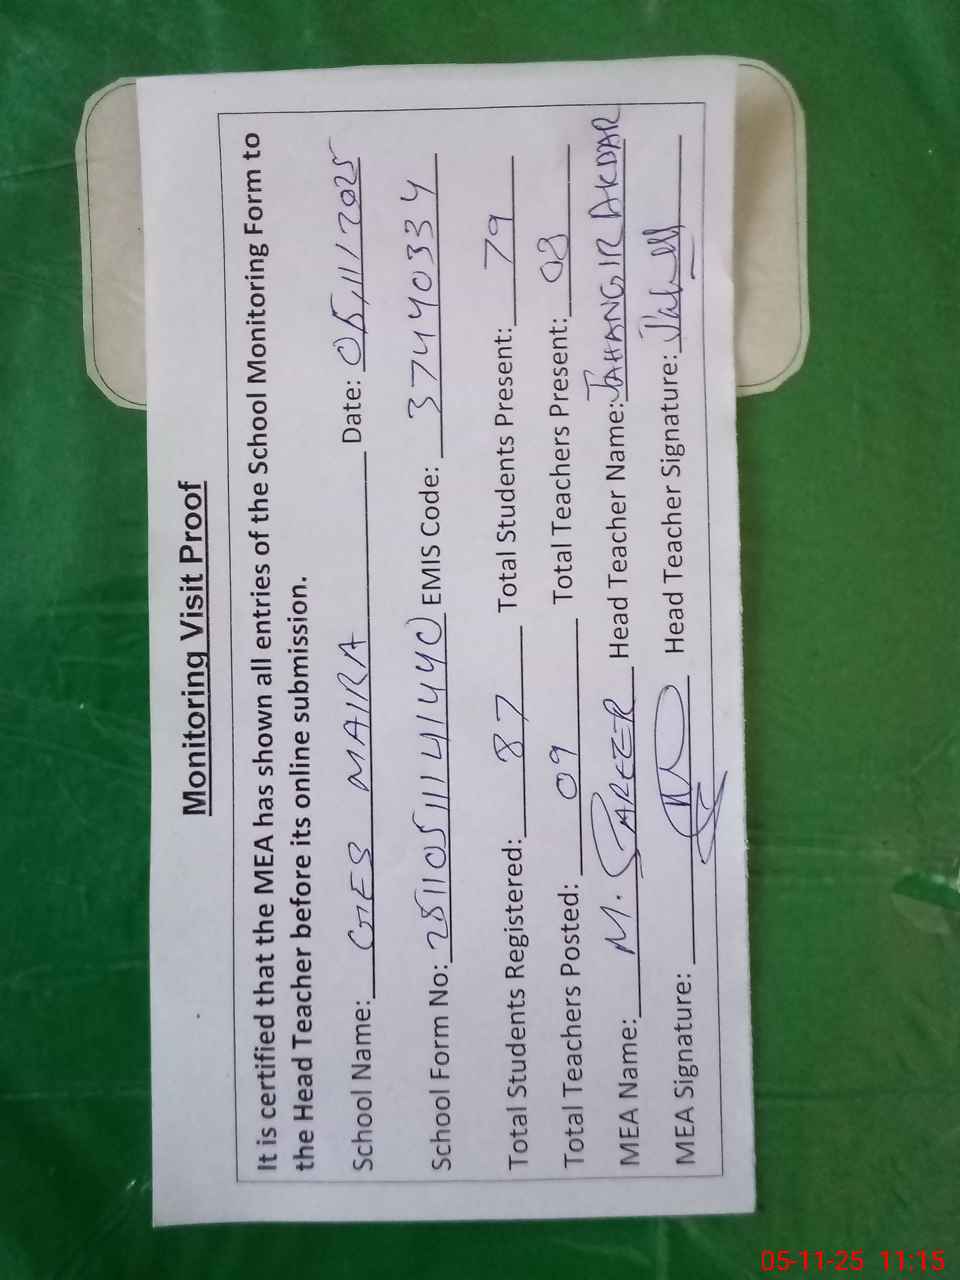 Monitoring Visit Proof
It is certified that the MEA has shown all entries of the School Monitoring Form to
the Head Teacher before its online submission.
School Name: GES MAIRA Date: 05/11/2025
School Form No: EMIS Code: 37440334
Total Students Registered: 87 Total Students Present: 79
Total Teachers Posted: 09 Total Teachers Present: 08
MEA Name: M. Head Teacher Name: JAHANGIR
MEA Signature: Head Teacher Signature:
05-11-25 11:15